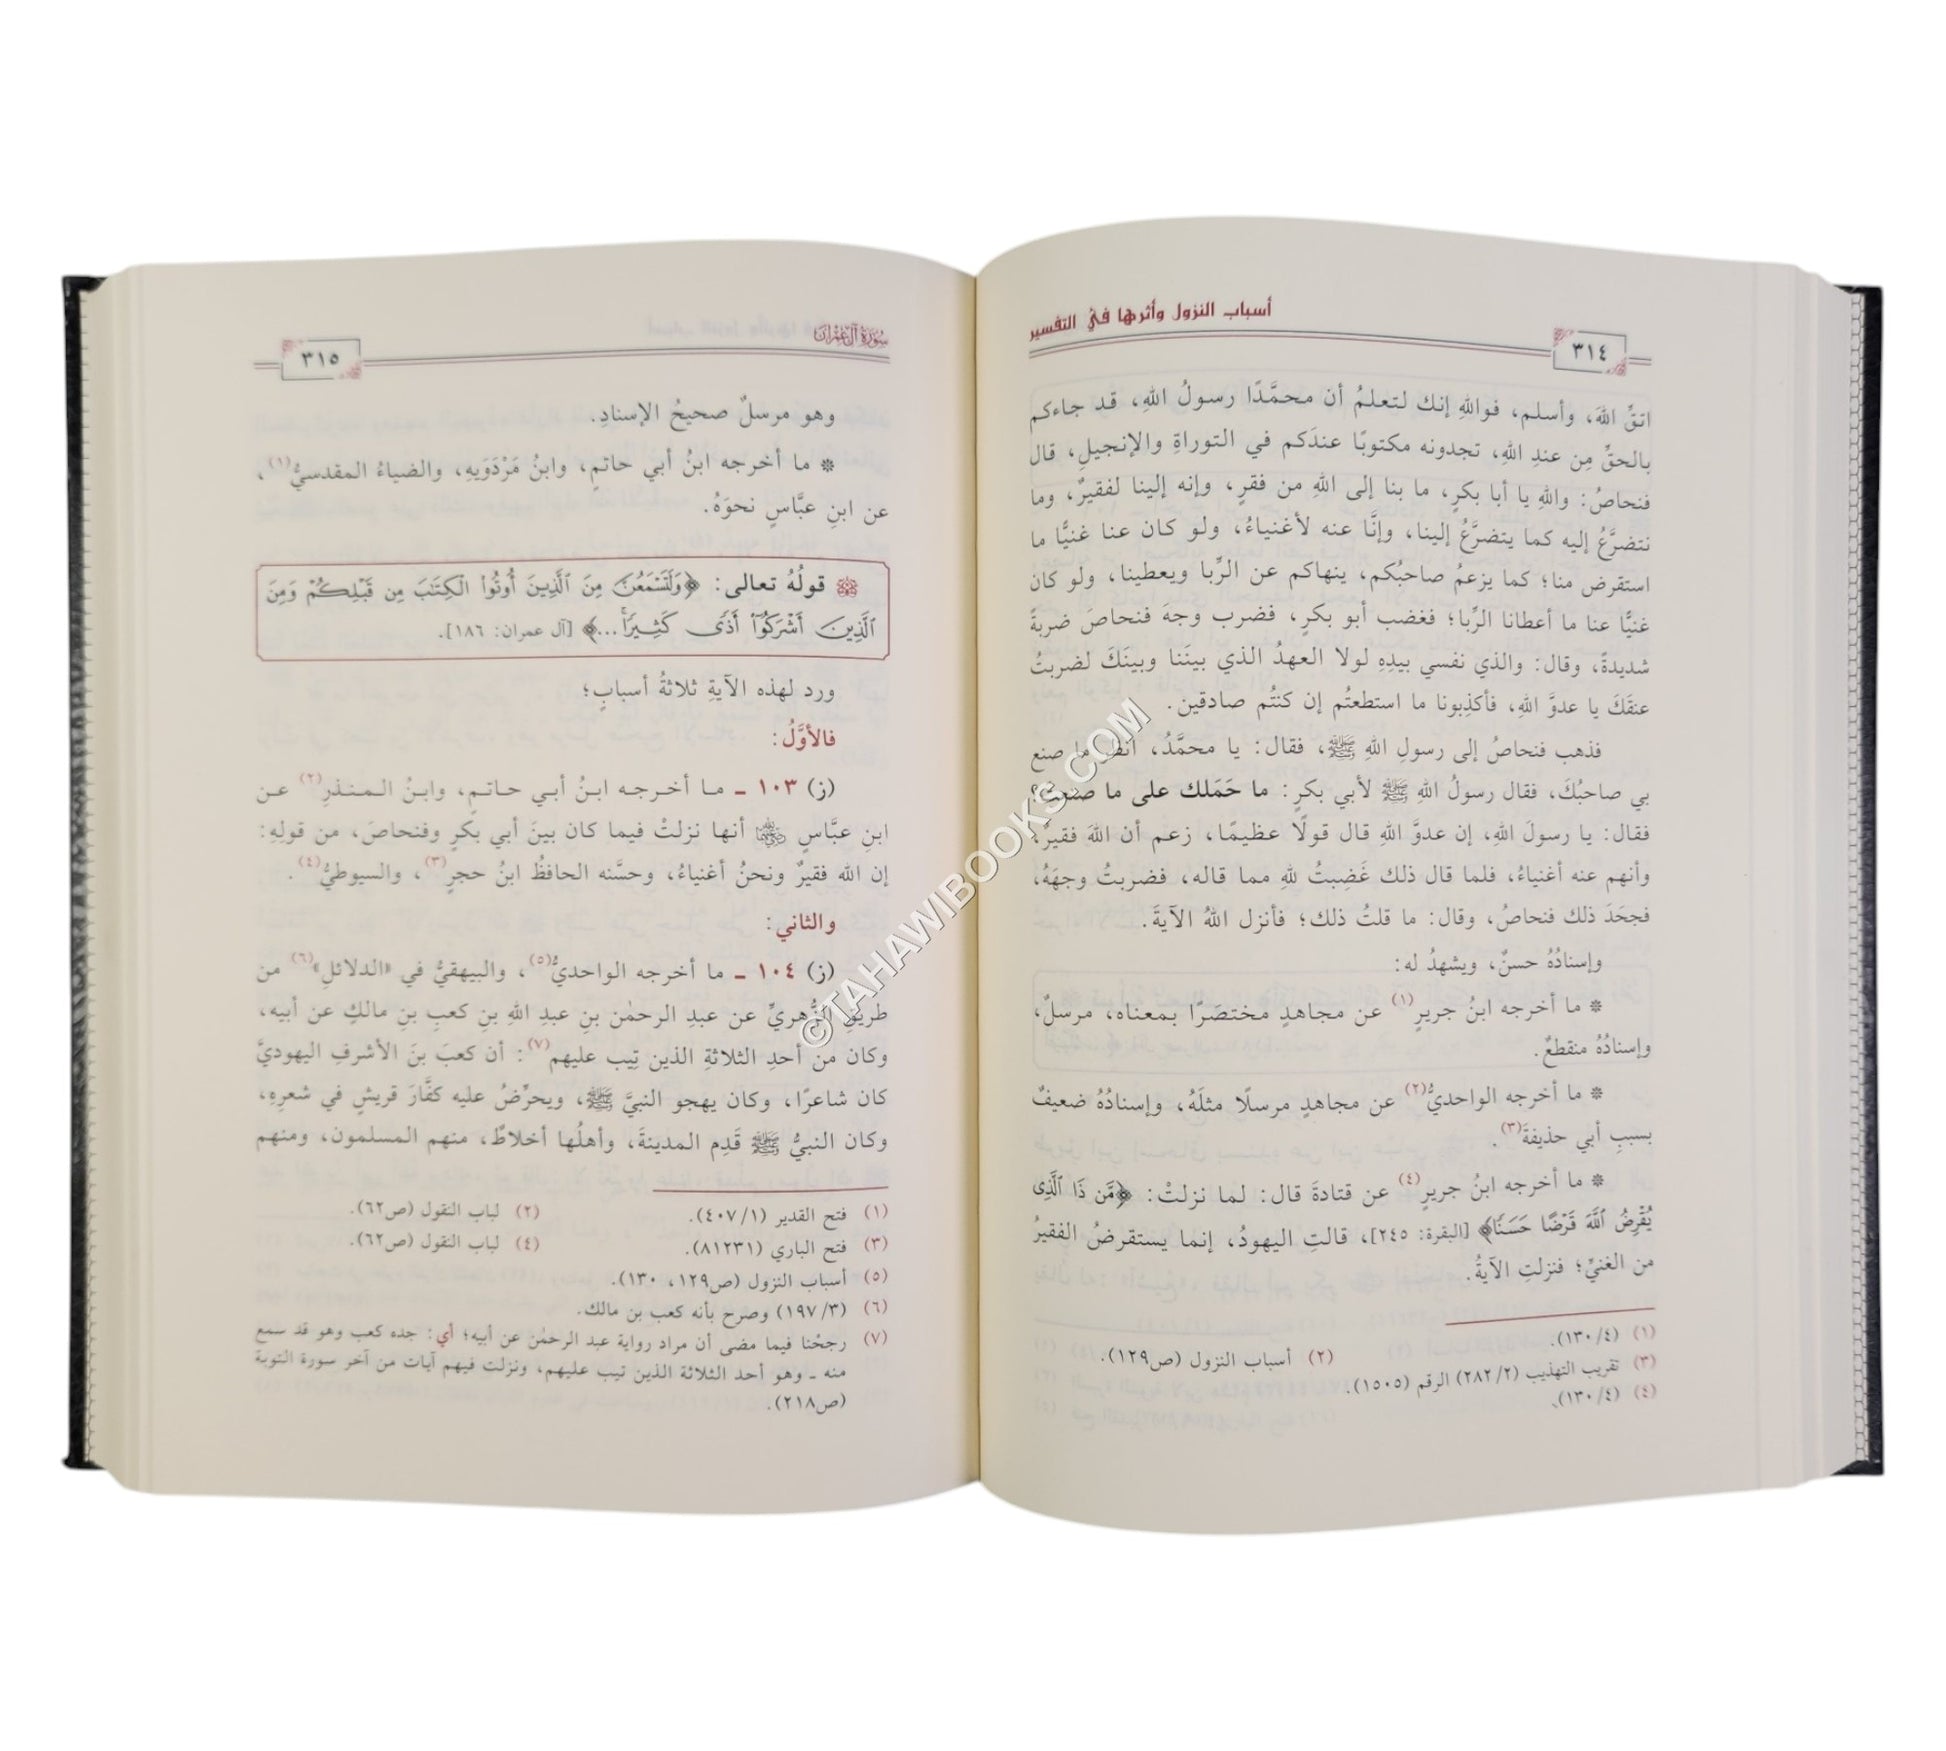 أسباب النزول وأثرها في التفسير
٣١٤
اتقِّ اللهَ، وأسلم، فواللهِ إنك لتعلمُ أن محمَّدًا رسولُ اللهِ، قد جاءكم
بالحقِّ مِن عندِ اللهِ، تجدونه مكتوبًا عندَكم في التوراةِ والإنجيلِ، قال
فنحاصُ: واللهِ يا أبا بكرٍ، ما بنا إلى اللهِ من فقرٍ، وإنه إلينا لفقيرٌ، وما
نتضرَّعُ إليه كما يتضرَّعُ إلينا، وإنَّا عنه لأغنياءُ، ولو كان عنا غنيًّا ما
استقرض منا؛ كما يزعمُ صاحبُكم، ينهاكم عن الرِّبا ويعطينا، ولو كان
غنيًّا عنا ما أعطانا الرِّبا؛ فغضب أبو بكرٍ، فضرب وجهَ فنحاصَ ضربةً
شديدةً، وقال: والذي نفسي بيدِهِ لولا العهدُ الذي بينَنا وبينَكَ لضربتُ
عنقَكَ يا عدوَّ اللهِ، فأكذِبونا ما استطعتُم إن كنتُم صادقين.
فذهب فنحاصُ إلى رسولِ اللهِ ﷺ، فقال: يا محمَّدُ، انظر ما صنع
بي صاحبُكَ، فقال رسولُ اللهِ ﷺ لأبي بكرٍ: ما حَمَلك على ما صنعتَ؟
فقال: يا رسولَ اللهِ، إن عدوَّ اللهِ قال قولًا عظيمًا، زعم أن اللهَ فقيرٌ،
وأنهم عنه أغنياءُ، فلما قال ذلك غَضِبتُ للهِ مما قاله، فضربتُ وجهَهُ،
فجحَدَ ذلك فنحاصُ، وقال: ما قلتُ ذلك؛ فأنزل اللهُ الآيةَ.
وإسنادُهُ حسنٌ، ويشهدُ له:
* ما أخرجه ابنُ جريرٍ(١) عن مجاهدٍ مختصَرًا بمعناه، مرسلٌ،
وإسنادُهُ منقطعٌ.
* ما أخرجه الواحديُّ(٢) عن مجاهدٍ مرسلًا مثلَهُ، وإسنادُهُ ضعيفٌ
بسببِ أبي حذيفةَ(٣).
* ما أخرجه ابنُ جريرٍ(٤) عن قتادةَ قال: لما نزلتْ: ﴿مَّن ذَا ٱلَّذِى
يُقْرِضُ ٱللَّهَ قَرْضًا حَسَنًا﴾ [البقرة: ٢٤٥]، قالتِ اليهودُ، إنما يستقرضُ الفقيرُ
من الغنيِّ؛ فنزلتِ الآيةُ.
(١) (٤/ ١٣٠).
(٢) أسباب النزول (ص١٢٩).
(٣) تقريب التهذيب (٢/ ٢٨٢) الرقم (١٥٠٥).
(٤) (٤/ ١٣٠).
سُورَةُ آلِ عِمْرَانَ
٣١٥
وهو مرسلٌ صحيحُ الإسنادِ.
* ما أخرجه ابنُ أبي حاتمٍ، وابنُ مَرْدَوَيهِ، والضياءُ المقدسيُّ(١)،
عن ابنِ عبَّاسٍ نحوَهُ.
قولُهُ تعالى: ﴿وَلَتَسْمَعُنَّ مِنَ ٱلَّذِينَ أُوتُوا۟ ٱلْكِتَٰبَ مِن قَبْلِكُمْ وَمِنَ
ٱلَّذِينَ أَشْرَكُوٓا۟ أَذًى كَثِيرًا...﴾ [آل عمران: ١٨٦].
ورد لهذه الآيةِ ثلاثةُ أسبابٍ؛
فالأوَّلُ:
(ز) ١٠٣ ـ ما أخرجه ابنُ أبي حاتمٍ، وابنُ المنذرِ(٢) عن
ابنِ عبَّاسٍ ﵄ أنها نزلتْ فيما كان بينَ أبي بكرٍ وفنحاصَ، من قولِهِ:
إن الله فقيرٌ ونحنُ أغنياءُ، وحسَّنه الحافظُ ابنُ حجرٍ(٣)، والسيوطيُّ(٤).
والثاني:
(ز) ١٠٤ ـ ما أخرجه الواحديُّ(٥)، والبيهقيُّ في «الدلائلِ»(٦) من
طريقِ الزُّهريِّ عن عبدِ الرحمٰن بنِ عبدِ اللهِ بنِ كعبِ بنِ مالكٍ عن أبيه،
وكان من أحدِ الثلاثةِ الذين تِيب عليهم(٧): أن كعبَ بنَ الأشرفِ اليهوديَّ
كان شاعرًا، وكان يهجو النبيَّ ﷺ، ويحرِّضُ عليه كفَّارَ قريشٍ في شعرِهِ،
وكان النبيُّ ﷺ قَدِم المدينةَ، وأهلُها أخلاطٌ، منهم المسلمون، ومنهم
(١) فتح القدير (١/ ٤٠٧).
(٢) لباب النقول (ص٦٢).
(٣) فتح الباري (٨١٢٣١).
(٤) لباب النقول (ص٦٢).
(٥) أسباب النزول (ص١٢٩، ١٣٠).
(٦) (٣/ ١٩٧) وصرح بأنه كعب بن مالك.
(٧) رجحْنا فيما مضى أن مراد رواية عبد الرحمٰن عن أبيه؛ أي: جده كعب وهو قد سمع
منه ـ وهو أحد الثلاثة الذين تيب عليهم، ونزلت فيهم آيات من آخر سورة التوبة
(ص٢١٨).
©TAHAWIBOOKS.COM